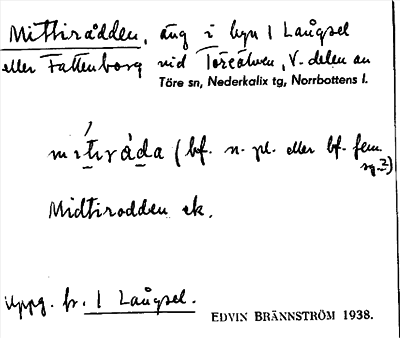 Mittirådden, äng i byn 1 Langsel
eller Fattenborg vid Töreälven, V. delen av
Töre sn, Nederkalix tg, Norrbottens l.
mítɩråda (bf. n. pl. eller bf. fem.
sg.?)
Midtirodden ek.
Uppg. fr. 1 Långsel.
EDVIN BRÄNNSTRÖM 1938.